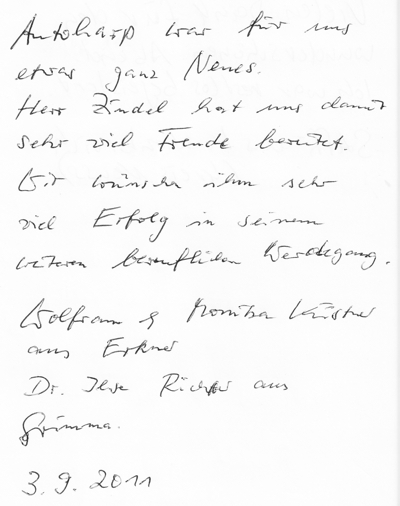 Autoharp war für uns
etwas ganz Neues.
Herr Zindel hat uns damit
sehr viel Freude bereitet.
Wir wünschen ihm sehr
viel Erfolg in seinem
weiteren beruflichen Werdegang.
Wolfram & Monika Küstner
aus Erkner
Dr. Ilse Richter aus
Grimma.
3.9.2011